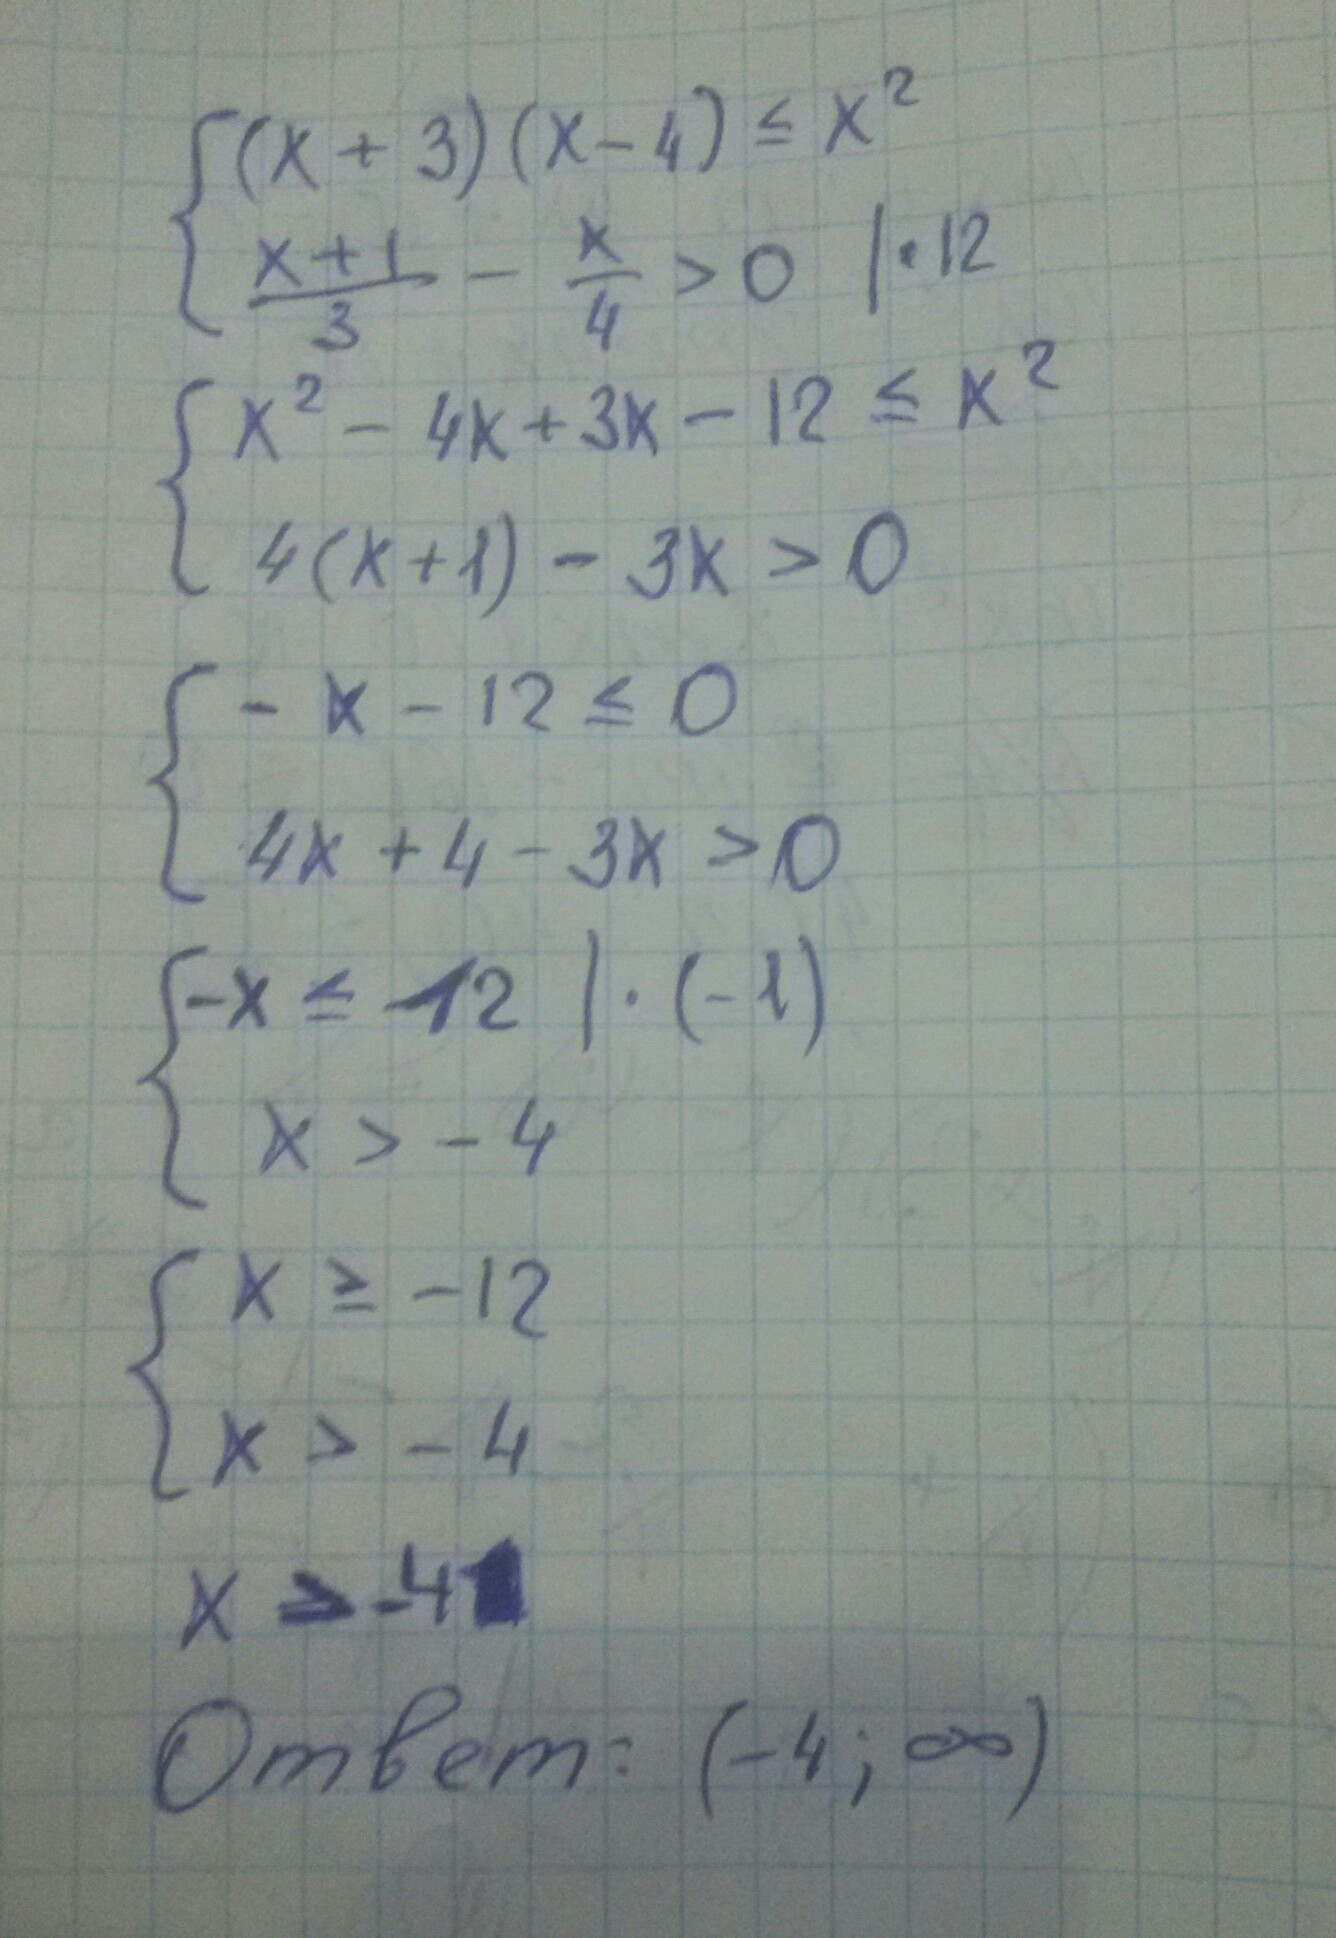 (x + 3)(x - 4) ≤ x²
x + 1 / 3 - x / 4 > 0 | · 12
x² - 4x + 3x - 12 ≤ x²
4(x + 1) - 3x > 0
- x - 12 ≤ 0
4x + 4 - 3x > 0
-x ≤ 12 | · (-1)
x > - 4
x ≥ -12
x > - 4
x > -4
Ответ: (-4; ∞)